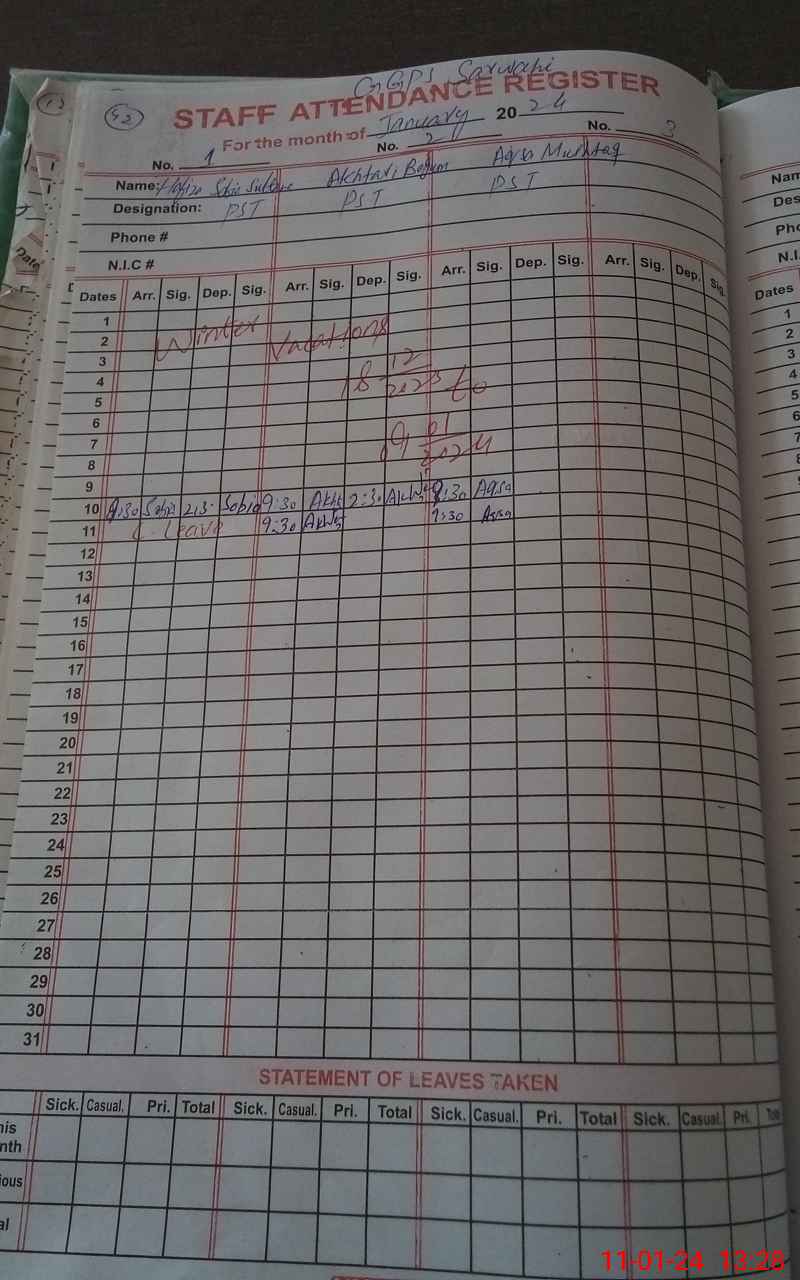 GGPS Sarwahi
42
STAFF ATTENDANCE REGISTER
For the month of January 2024
No. 1 No. 2 No. 3
Name: Sultana Akhtari Begum Aqsa Mushtaq
Designation: PST PST PST
Phone #
N.I.C #
Dates Arr. Sig. Dep. Sig. Arr. Sig. Dep. Sig. Arr. Sig. Dep. Sig. Arr. Sig. Dep. Sig.
1
2 Winter Vacations
3
4 18 12 2023 to
5
6
7 09 01 2024
8
9
10 9:30 Sobia 2:3 Sobia 9:30 Akht 2:30 9:30 Aqsa
11 C. Leave 9:30 9:30 Aqsa
12
13
14
15
16
17
18
19
20
21
22
23
24
25
26
27
28
29
30
31
STATEMENT OF LEAVES TAKEN
Sick. Casual. Pri. Total Sick. Casual. Pri. Total Sick. Casual. Pri. Total Sick. Casual. Pri.
his
nth
ious
al
Nam
Des
Pho
N.I.
Dates
1
2
3
4
5
6
7
8
Date
11-01-24 13:28